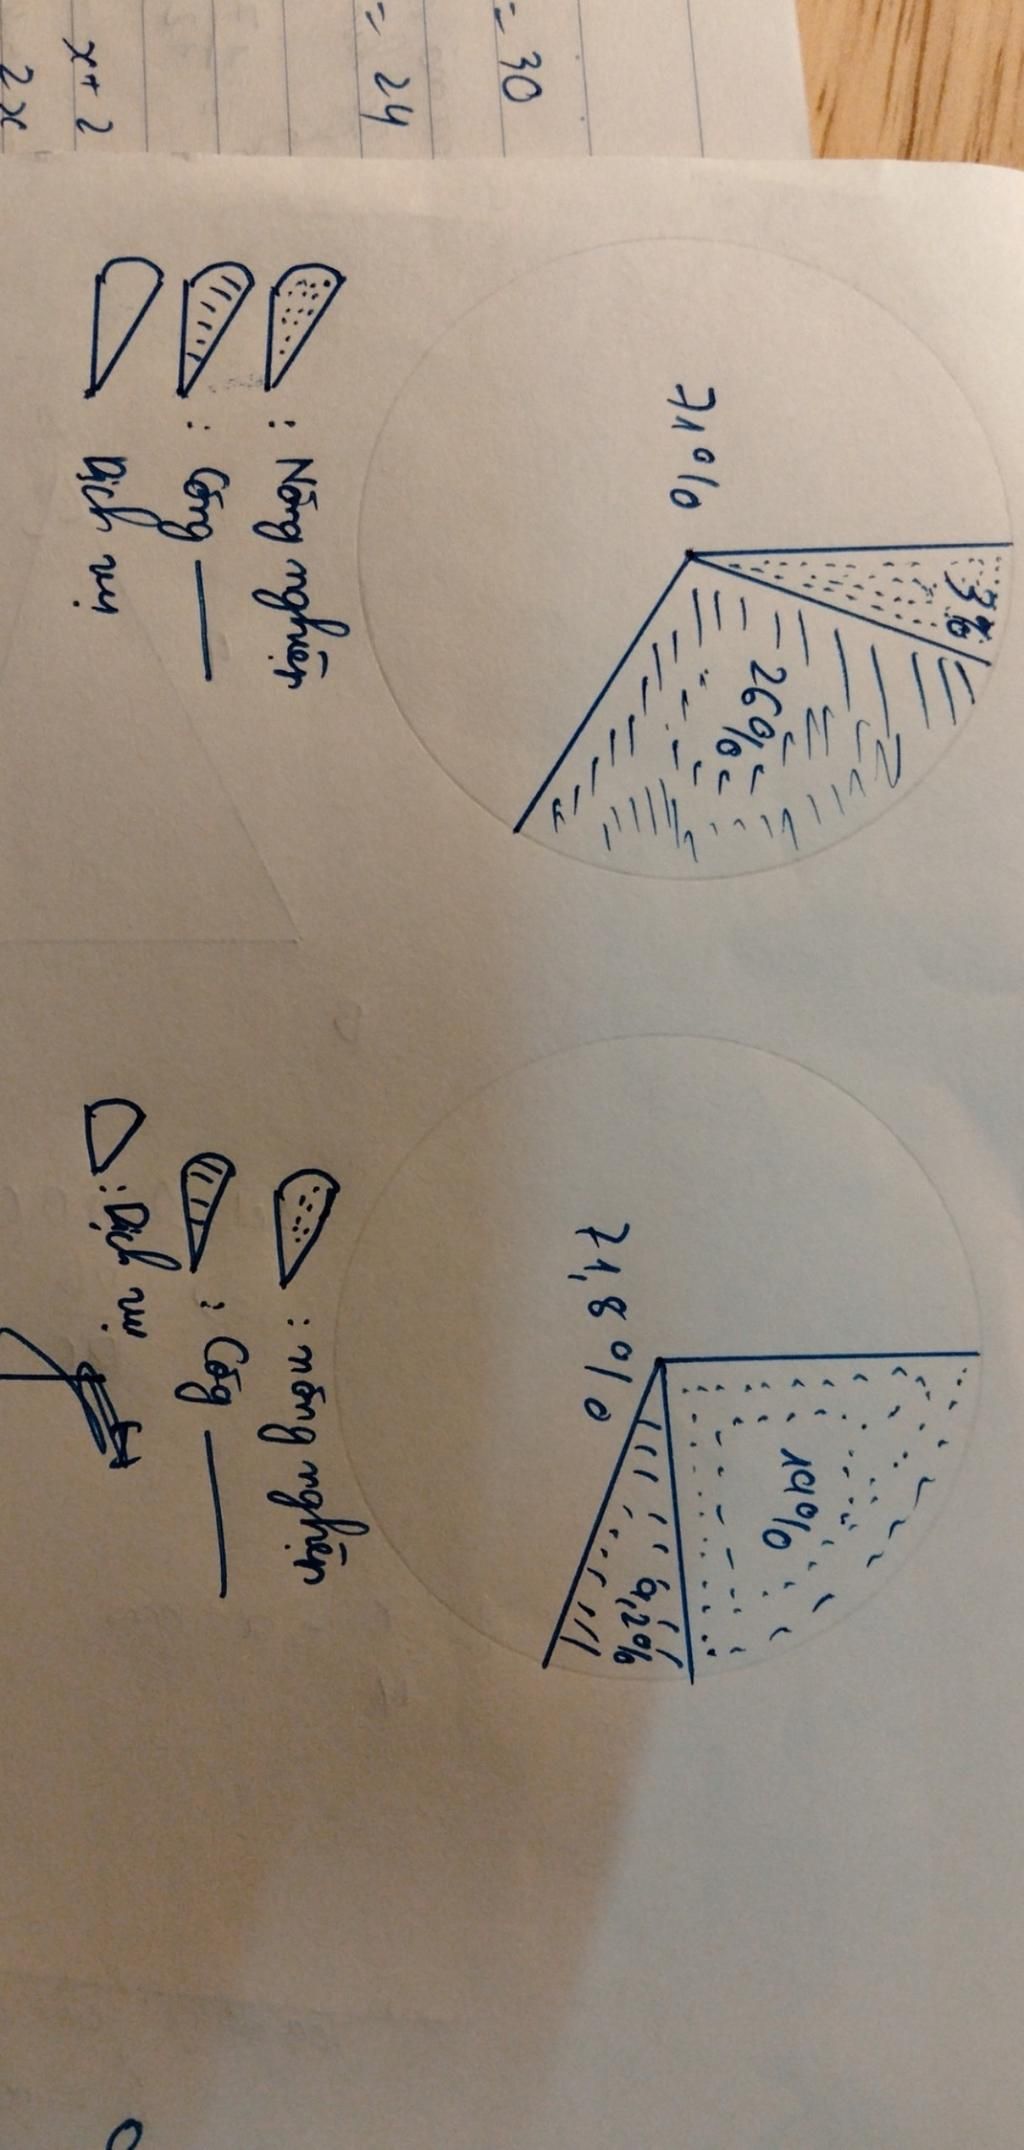 = 30
= 24
x + 2
2x
3%
26%
71%
: Nông nghiệp
: Công ——
Dịch vụ
19%
6,2%
71,8%
: nông nghiệp
: Côg ——
: Dịch vụ